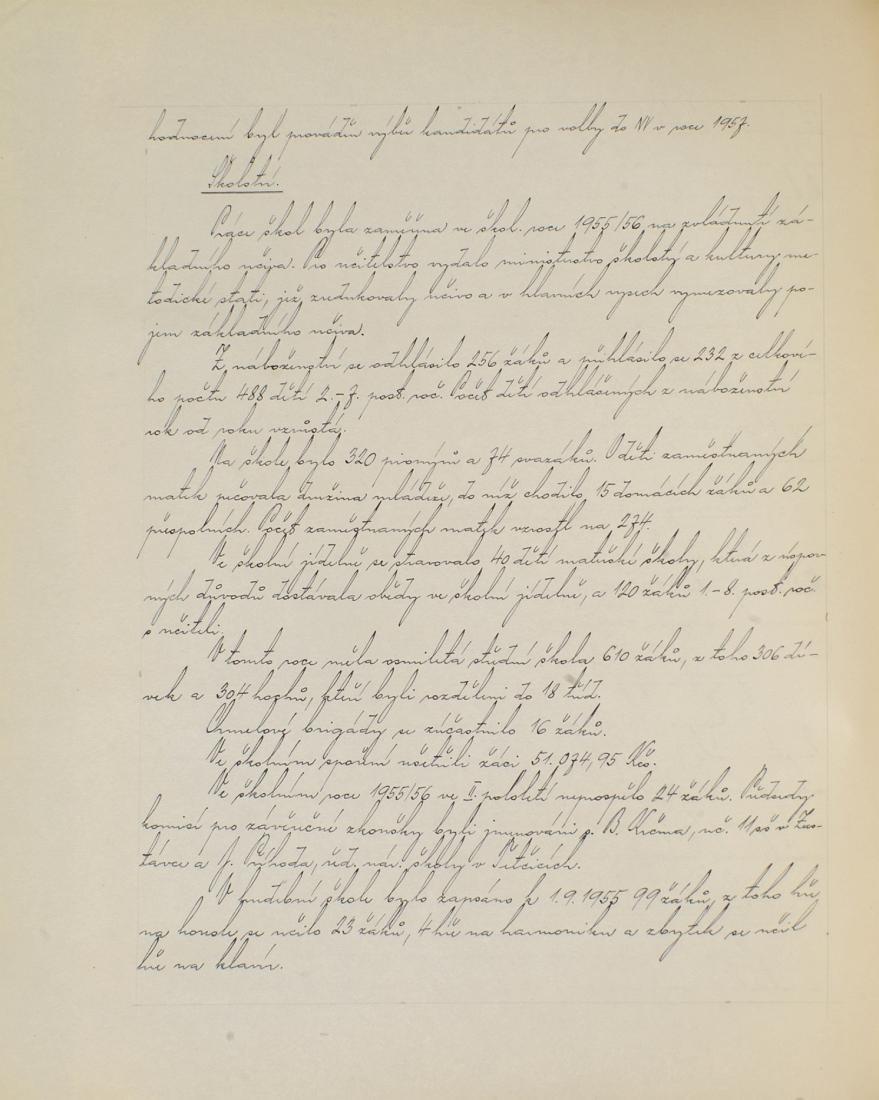 hodnocení byl prováděn výběr kandidátů pro volby do NV v roce 1957.
Školství.
Práce škol byla zaměřena ve škol. roce 1955/56 na zvládnutí zá-
kladního učiva. Pro učitelstvo vydalo ministerstvo školství a kultury me-
todické stati, jež zredukovaly učivo a v hlavních rysech vymezovaly po-
jem základního učiva.
Z náboženství se odhlásilo 256 žáků a přihlásilo se 232 z celkové-
ho počtu 488 dětí 2.-7. post. roč. Počet dětí odhlášených z náboženství
rok od roku vzrůstá.
Na škole bylo 320 pionýrů a 74 svazáků. O děti zaměstnaných
matek pečovala družina mládeže, do níž chodilo 15 domácích žáků a 62
přespolních. Počet zaměstnaných matek vzrostl na 274.
Ve školní jídelně se stravovalo 40 dětí mateřské školy, která z úspor-
ných důvodů dostávala obědy ve školní jídelně, a 120 žáků 1.-8. post. roč.
s učiteli.
V tomto roce měla osmiletá střední škola 610 žáků, z toho 306 dí-
vek a 304 hochů, kteří byli rozděleni do 18 tříd.
Chmelové brigády se zúčastnilo 16 žáků.
Ve školním spoření ušetřili žáci 51.074,95 Kčs.
Ve školním roce 1955/56 ve II. pololetí neprospělo 24 žáků. Předsedy
komisí pro závěrečné zkoušky byli jmenováni s. B. Krčma, uč. 11SŠ v Zas-
távce a J. Příhoda, řed. nár. školy v Tetčicích.
V hudební škole bylo zapsáno k 1.9.1955 99 žáků, z toho hře
na housle se učilo 23 žáků, 4 hře na harmoniku a zbytek se učil
hře na klavír.